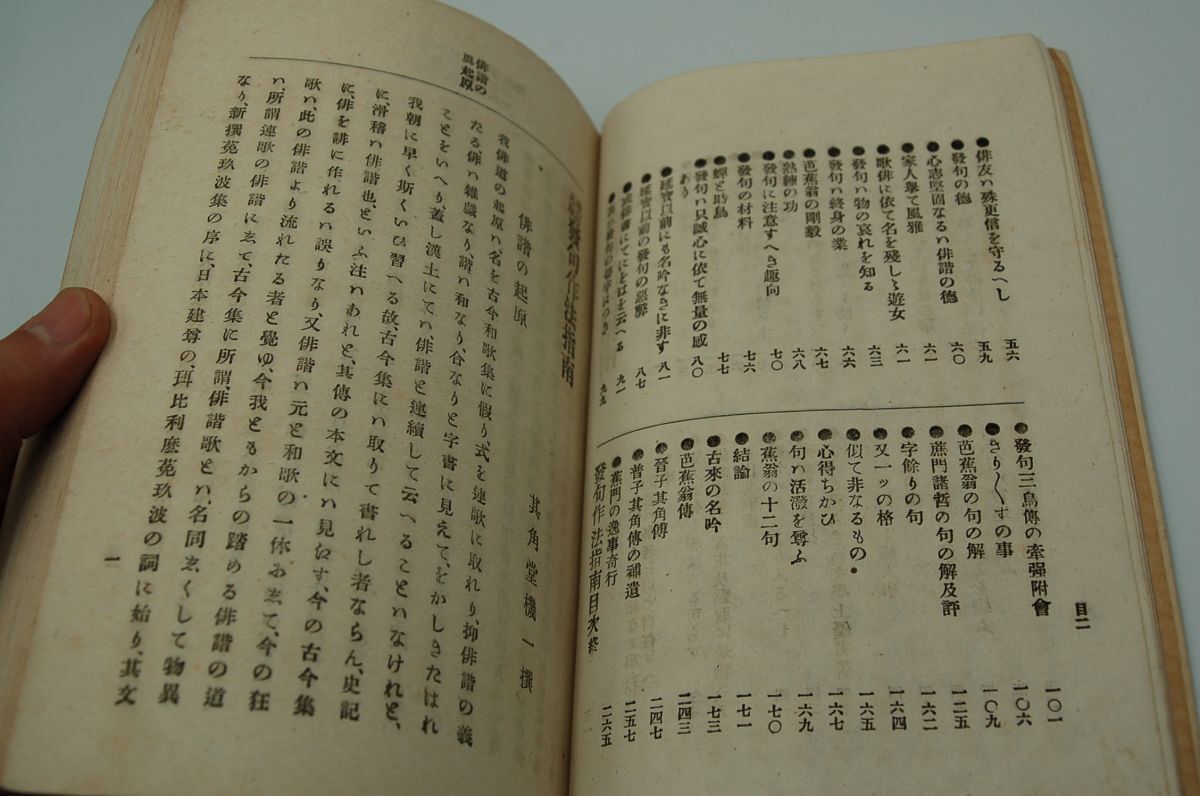 目二
●俳友ハ殊更信を守るへし 五六
●發句の德 五九
●心志堅固なるハ俳諧の德 六〇
●家人擧て風雅 六一
●歌俳に依て名を殘しゝ遊女 六一
●發句ハ物の哀れを知る 六三
●發句ハ終身の業 六六
●芭蕉翁の剛毅 六七
●熟練の功 六八
●發句に注意すへき趣向 七〇
●發句の材料 七六
●蟬と時鳥 七七
●發句ハ只誠心に依て無量の感あり 八〇
●延寶以前にも名吟なきに非す 八一
●延寶以前の發句の惡弊 八七
●俳書にてにをはを云へる 九一
九九
●發句三鳥傳の牽强附會 一〇一
●きり〳〵すの事 一〇六
●芭蕉翁の句の解 一〇九
●蕉門諸哲の句の解及評 一二五
●字餘りの句 一六二
●又一ッの格 一六四
●似て非なるもの 一六五
●心得ちかひ 一六七
●句ハ活潑を尊ふ 一六九
●蕉翁の十二句 一七〇
●結論 一七一
●古來の名吟 一七三
●芭蕉翁傳 二四三
●晉子其角傳 二四七
●晉子其角傳の補遺 二五七
●蕉門の逸事奇行 二六五
發句作法指南目次終
俳諧の起原
發句作法指南
其角堂機一撰
俳諧の起原
我俳道の起原ハ名を古今和歌集に假り式を連歌に取れり、抑俳諧の義
たる俳ハ雜戲なり、諧ハ和なり、合なりと字書に見えて、をかしきたはれ
ことをいへり、蓋し漢土にてハ、俳諧と連續して云へることハなけれと、
我朝に早く斯くいひ習へる故、古今集にハ取りて書れし者ならん、史記
に、滑稽ハ俳諧也、といふ注ハあれと、其傳の本文にハ見えす、今の古今集
に、俳を誹に作れるハ誤りなり、又俳諧ハ元と和歌の一体にして、今の狂
歌ハ、此の俳諧より流れたる者と覺ゆ、今我ともからの踏める俳諧の道
ハ、所謂連歌の俳諧にして、古今集に所謂、俳諧歌とハ、名同しくして物異
なり、新撰菟玖波集の序に、日本建尊の、珥比利麼菟玖波の詞に始り、其文
一